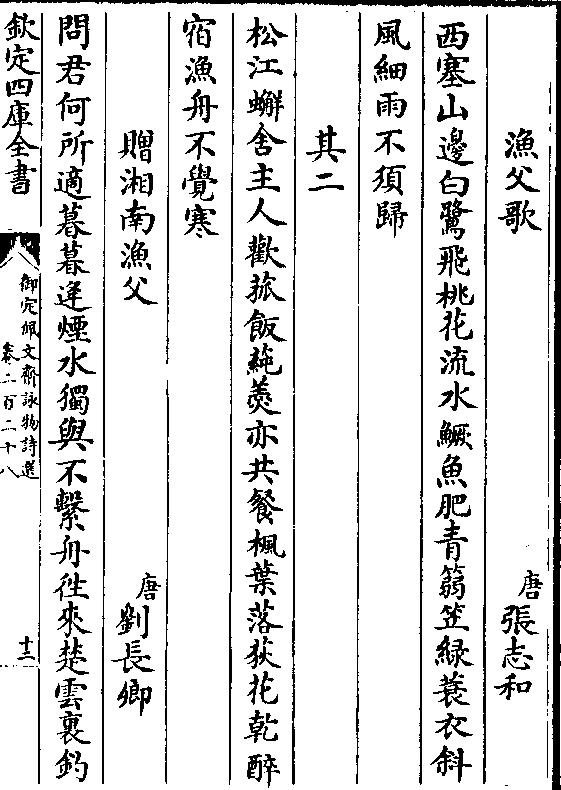 漁父歌 唐張志和
西塞山邊白鷺飛桃花流水鱖魚肥青箬笠綠蓑衣斜
風細雨不須歸
其二
松江蠏舍主人歡菰飯蓴羹亦共餐楓葉落荻花乾醉
宿漁舟不覺寒
贈湘南漁父 唐劉長卿
問君何所適暮暮逢煙水獨與不繫舟徃來楚雲裏釣
欽定四庫全書
御定佩文齋詠物詩選
卷二百二十八
十二